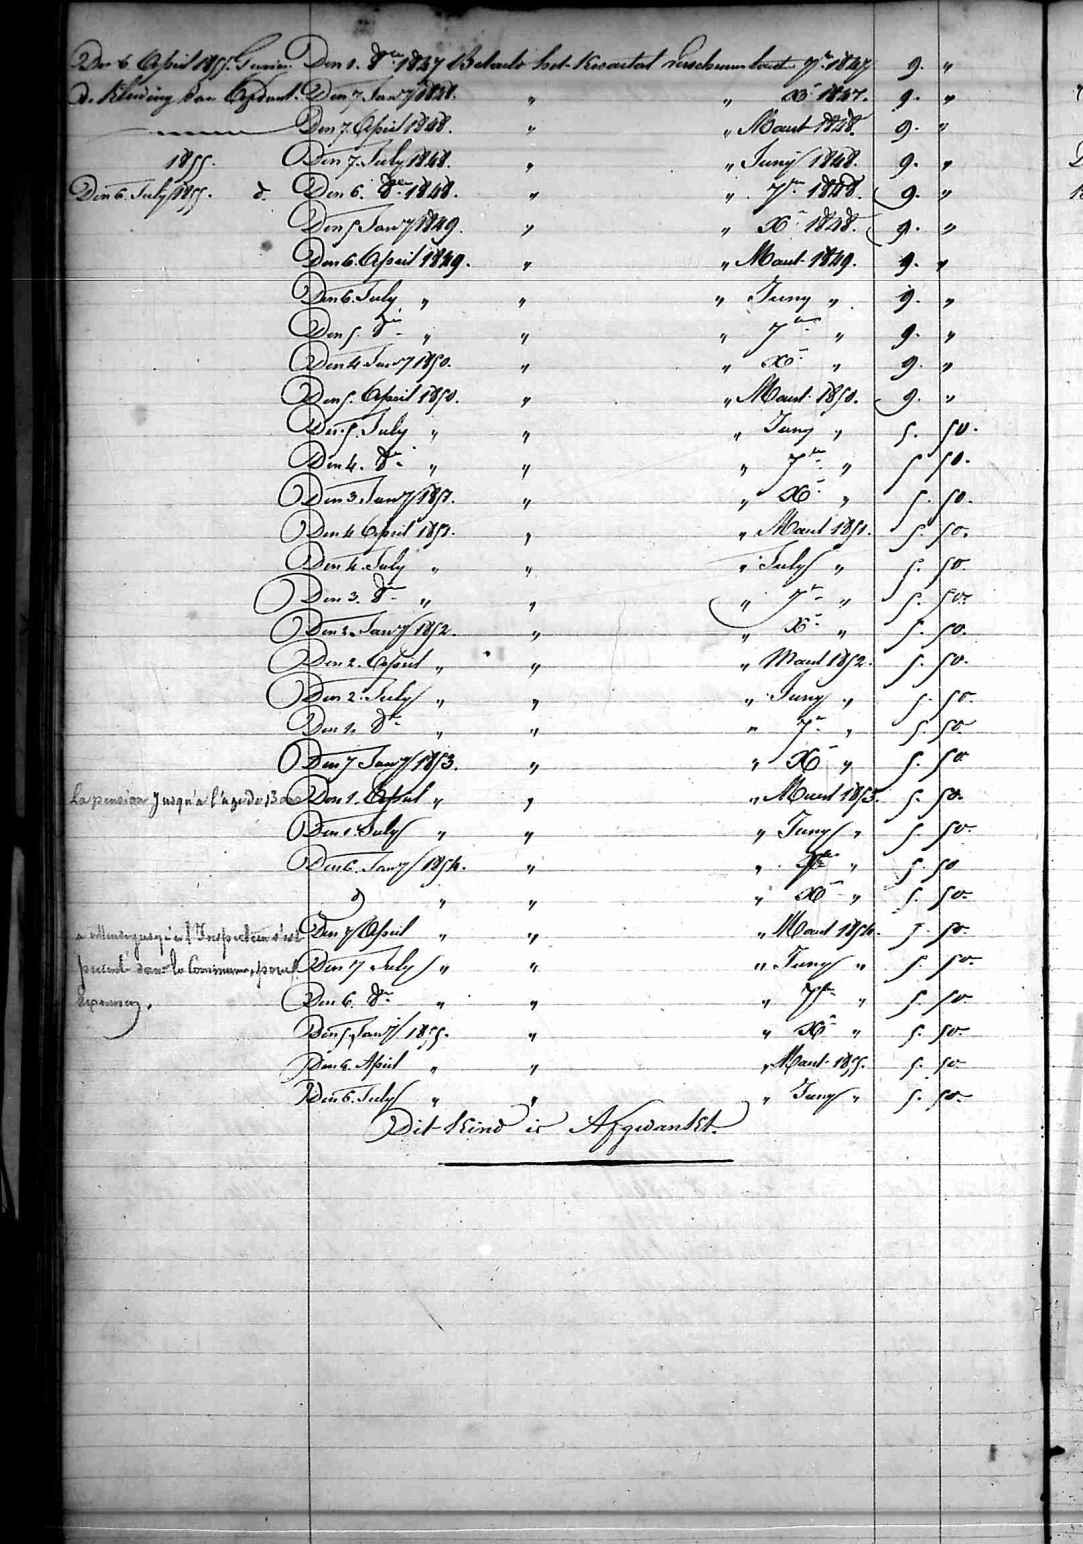 Den 6 April 1855. Den 1. 8bre 1847 Betaelt het Kwartael verschenen laest 7bre 1847 9. "
de Kleeding van April. Den 7. Janry 1848. " " Xbre 1847. 9. "
Den 7. April 1848. " " Maert 1848. 9. "
1855. Den 7. July 1848. " " Juny 1848. 9. "
Den 6. July 1855. d. Den 6. 8bre 1848. " " 7bre 1848. 9. "
Den 5 Janry 1849. " " Xbre 1848. 9. "
Den 6. April 1849. " " Maert 1849. 9. "
Den 6. July " " " Juny " 9. "
Den 5. 8bre " " " 7bre " 9. "
Den 4 Janry 1850. " " Xbre " 9. "
Den 5. April 1850. " " Maert 1850. 9. "
Den 5. July " " " Juny " 5. 50.
Den 4. 8bre " " " 7bre " 5 50.
Den 3. Janry 1851. " " Xbre " 5. 50.
Den 4 April 1851. " " Maert 1851. 5. 50.
Den 4. July " " " July " 5. 50
Den 3. 8bre " " " 7bre " 5. 50.
Den 2. Janry 1852. " " Xbre " 5. 50.
Den 2. April " " " Maert 1852. 5. 50.
Den 2. July " " " Juny " 5. 50.
Den 1. 8bre " " " 7bre " 5. 50
Den 7 Janry 1853. " " Xbre " 5. 50
La pension jusqu'à l'age de 13 ans Den 1. April " " " Maert 1853. 5. 50.
Den 1. July " " " Juny " 5. 50.
Den 6. Janry 1854. " " 7bre " 5. 50
" " " Xbre " 5. 50.
jusqu'à l'Inspecteur s'est Den 7 April " " " Maert 1854. 5. 50.
dans la Commune, pour Den 7 July " " " Juny " 5. 50.
Den 6. 8bre " " " 7bre " 5. 50.
Den 5. Janry 1855. " " Xbre " 5. 50.
Den 4. April " " " Maert 1855. 5. 50
Den 6. July " " " Juny " 5. 50.
Dit Kind is Afgedankt.